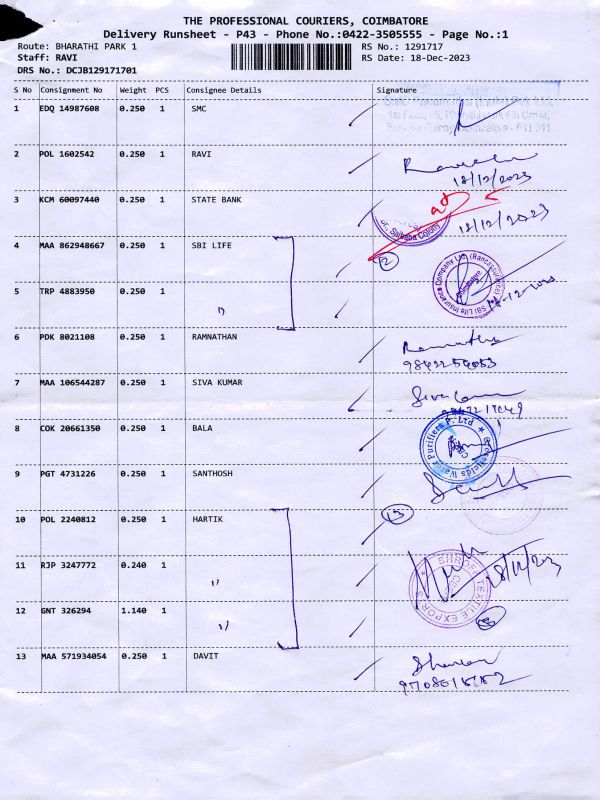 THE PROFESSIONAL COURIERS, COIMBATORE
Delivery Runsheet - P43 - Phone No.:0422-3505555 - Page No.:1
Route: BHARATHI PARK 1 RS No.: 1291717
Staff: RAVI RS Date: 18-Dec-2023
DRS No.: DCJB129171701
S No Consignment No Weight PCS Consignee Details Signature
1 EDQ 14987608 0.250 1 SMC
2 POL 1602542 0.250 1 RAVI
18/12/2023
3 KCM 60097440 0.250 1 STATE BANK
Saibaba Colony 18/12/2023
4 MAA 862948667 0.250 1 SBI LIFE 2
SBI Life Insurance Company Ltd. (Bancassurance) Coimbatore
5 TRP 4883950 0.250 1 "
6 PDK 8021108 0.250 1 RAMNATHAN
7 MAA 106544287 0.250 1 SIVA KUMAR
8 COK 20661350 0.250 1 BALA
Water Purifiers P. Ltd
9 PGT 4731226 0.250 1 SANTHOSH
10 POL 2240812 0.250 1 HARTIK 3
11 RJP 3247772 0.240 1 " 18/12/2023
SHROFF TEXTILE EXPORTS CBE
12 GNT 326294 1.140 1 "
13 MAA 571934054 0.250 1 DAVIT